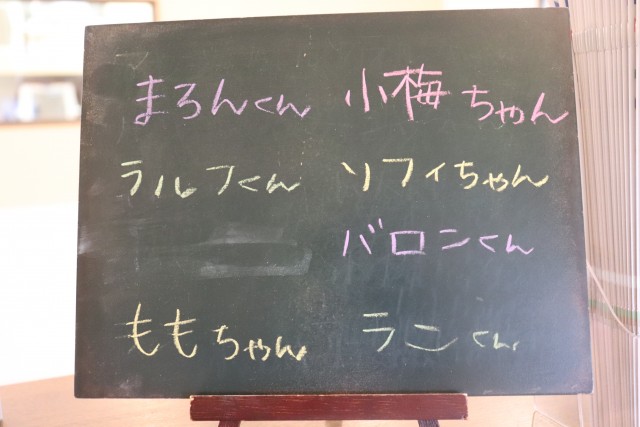 まろんくん 小梅ちゃん
ラルフくん ソフィちゃん
バロンくん
ももちゃん ランくん